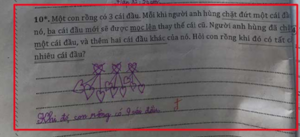 10*. Một con rồng có 3 cái đầu. Mỗi khi người anh hùng chặt đứt một cái đầu
nó, ba cái đầu mới sẽ được mọc lên thay thế cái cũ. Người anh hùng đã chặt
một cái đầu, và thêm hai cái đầu khác của nó. Hỏi con rồng khi đó có tất cả
nhiêu cái đầu?
Khi đó con rồng có 9 cái đầu